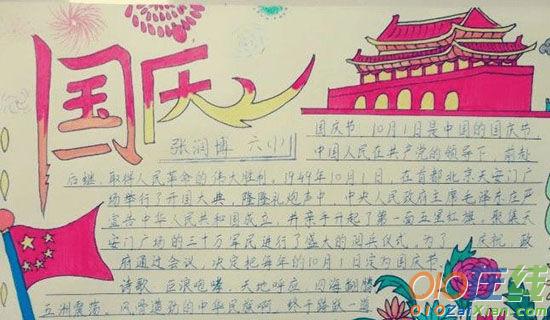 国庆
张润博 六(1)
国庆节 10月1日是中国的国庆节,
中国人民在共产党的领导下,前赴
后继,取得人民革命的伟大胜利,1949年10月1日,在首都北京天安门广
场举行了开国大典,隆隆礼炮声中,中央人民政府主席毛泽东庄严
宣告中华人民共和国成立,并亲手升起了第一面五星红旗,聚集天
安门广场的三十万军民进行了盛大的阅兵仪式,为了 庆祝,政
府通过会议,决定把每年的10月1日定为国庆节。
诗歌 巨浪咆哮,天地呼应,四海翻腾
五洲震荡,风雷激励的中华民族啊,终于踏跃一
出国在线
ZaiXian.com